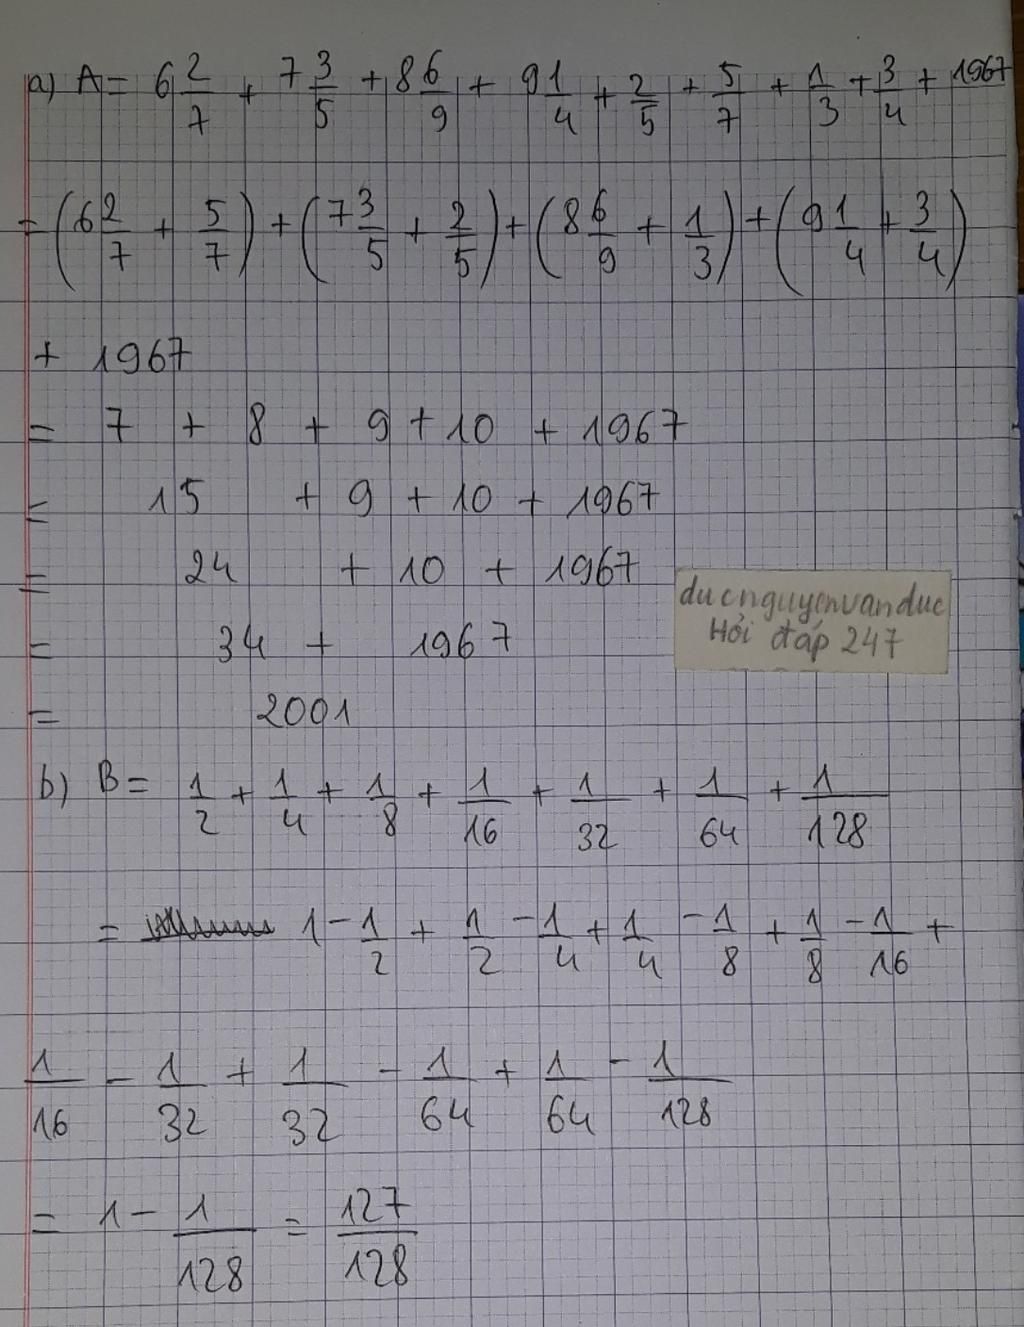 a) A = 6 2/7 + 7 3/5 + 8 6/9 + 9 1/4 + 2/5 + 5/7 + 1/3 + 3/4 + 1967
= (6 2/7 + 5/7) + (7 3/5 + 2/5) + (8 6/9 + 1/3) + (9 1/4 + 3/4)
+ 1967
= 7 + 8 + 9 + 10 + 1967
= 15 + 9 + 10 + 1967
= 24 + 10 + 1967
= 34 + 1967
= 2001
ducnguyenvanduc
Hỏi đáp 247
b) B = 1/2 + 1/4 + 1/8 + 1/16 + 1/32 + 1/64 + 1/128
= 1 - 1/2 + 1/2 - 1/4 + 1/4 - 1/8 + 1/8 - 1/16 +
1/16 - 1/32 + 1/32 - 1/64 + 1/64 - 1/128
= 1 - 1/128 = 127/128